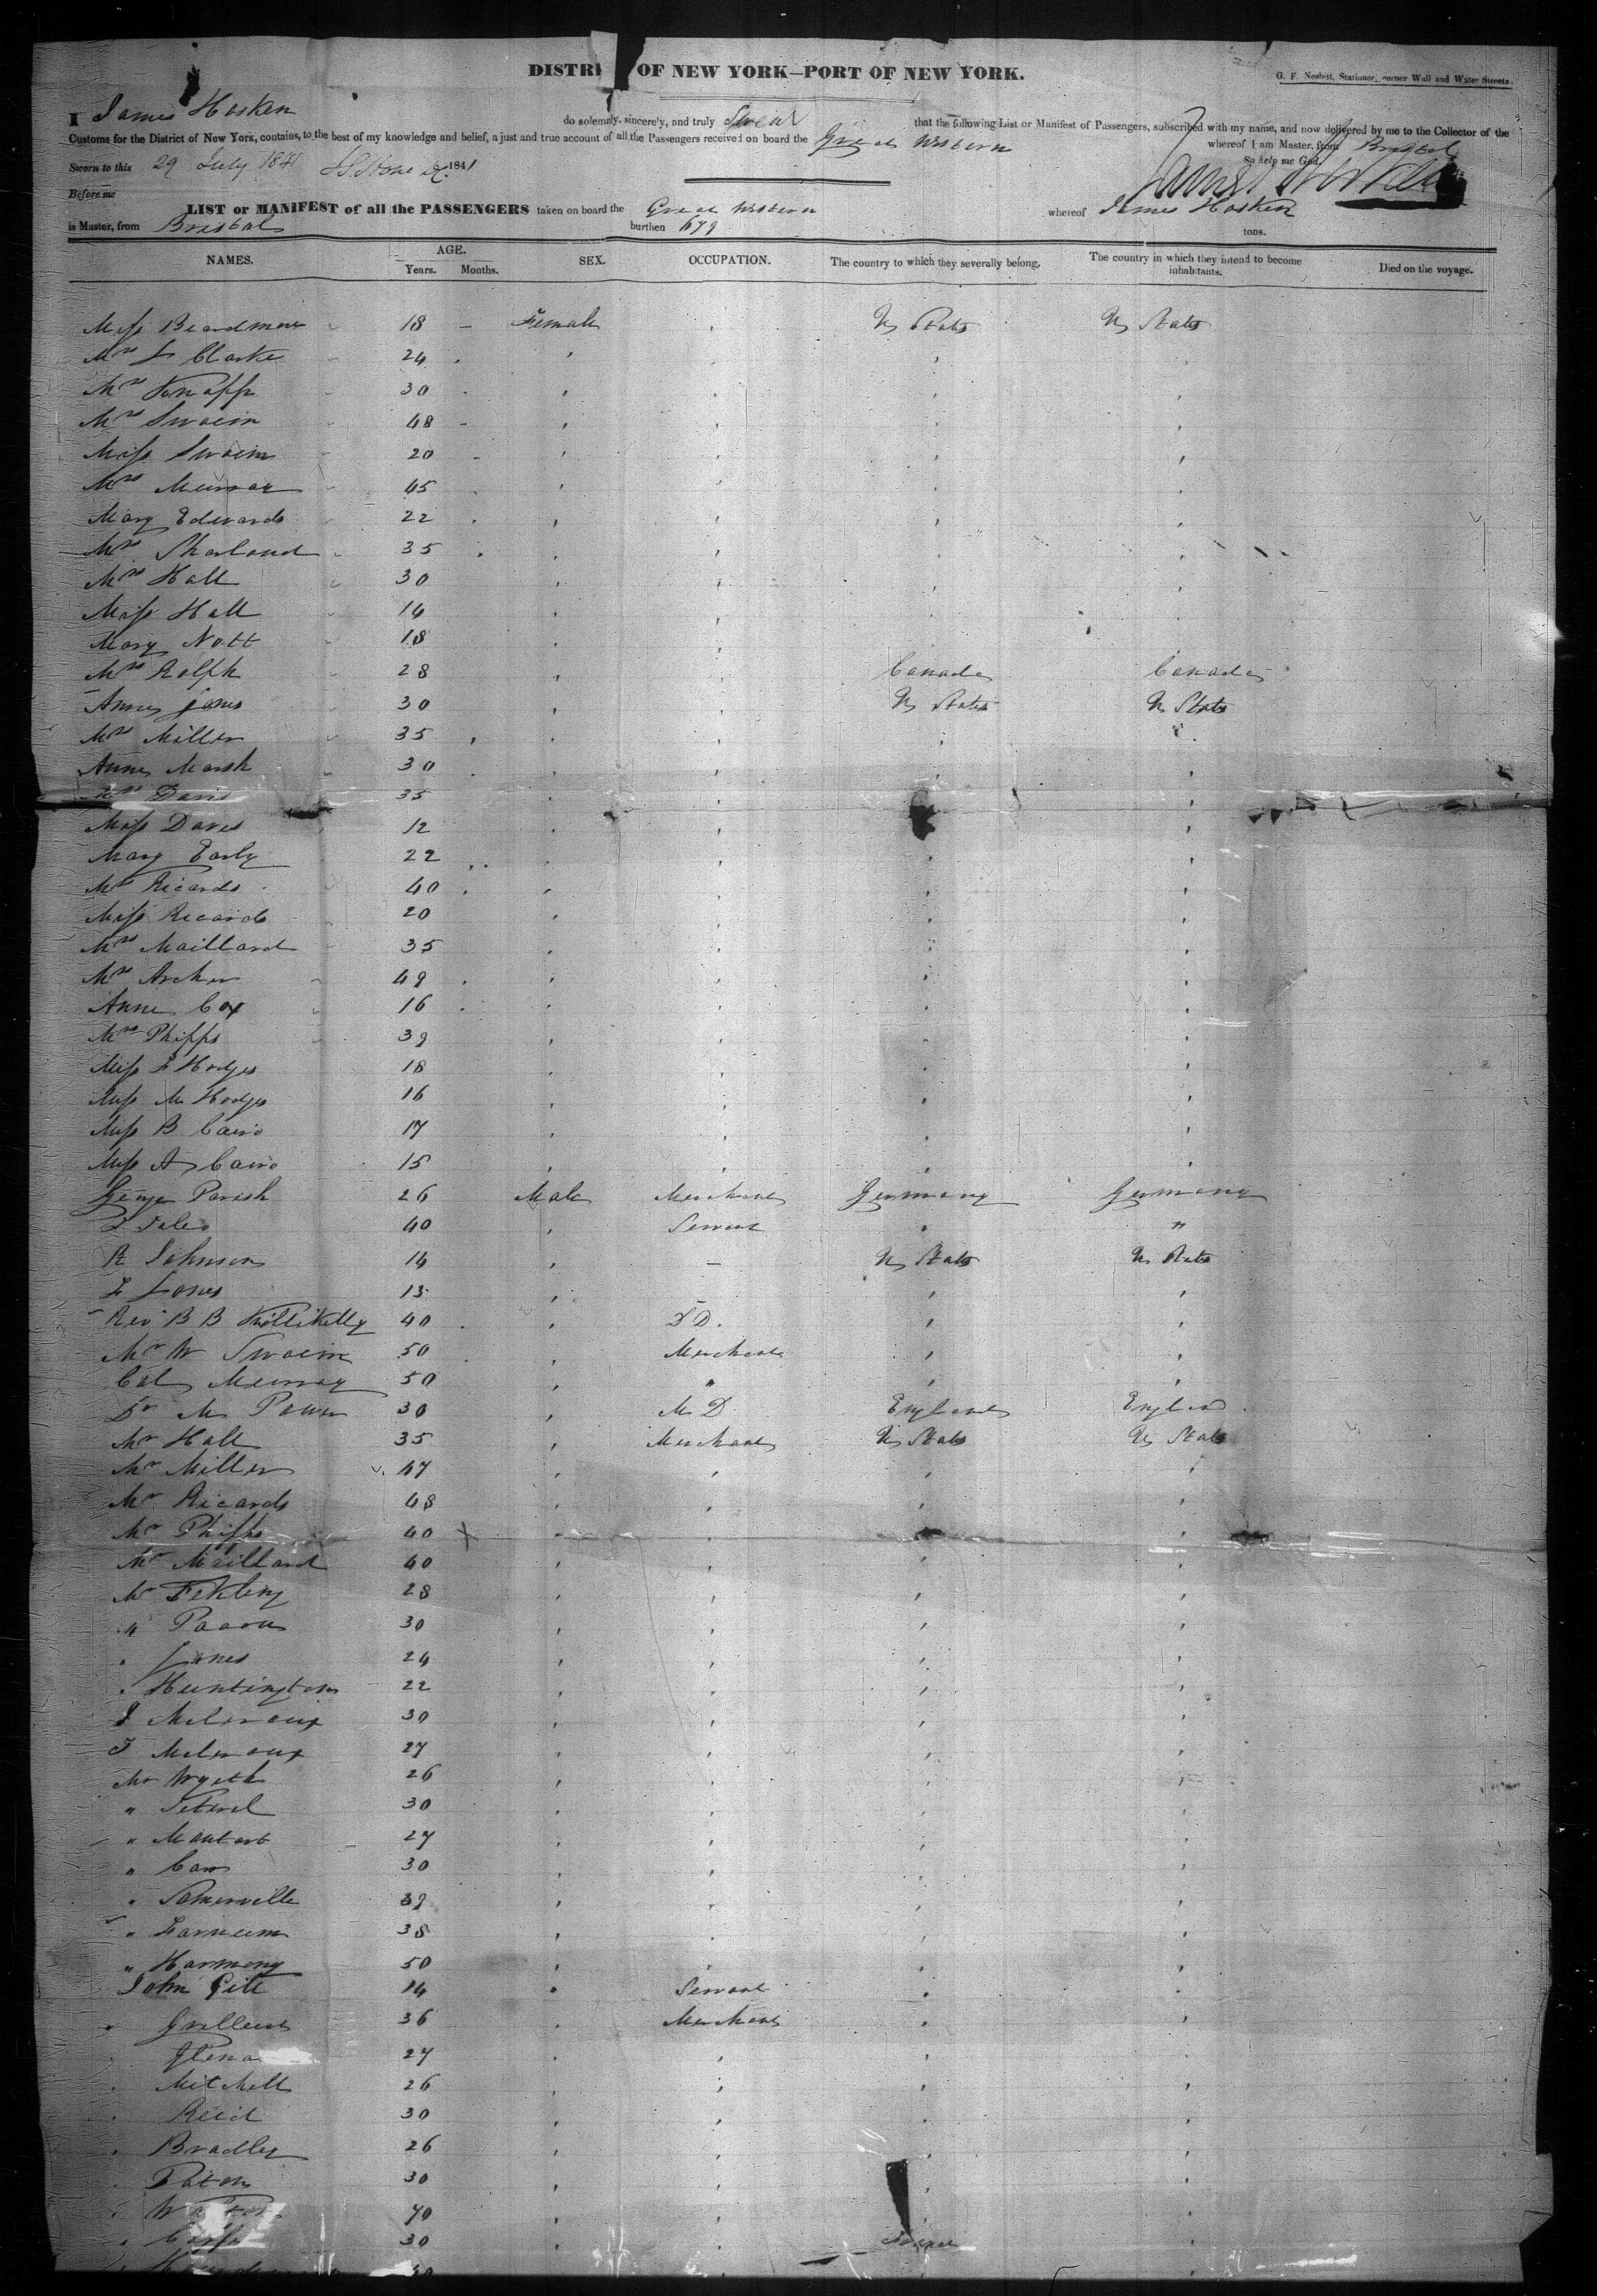 DISTRI OF NEW YORK—PORT OF NEW YORK.
G. F. Nesbitt, Stationer, corner Wall and Water Streets.
I James Hosken do solemnly, sincerely, and truly Swear that the following List or Manifest of Passengers, subscribed with my name, and now delivered by me to the Collector of the
Customs for the District of New York, contains, to the best of my knowledge and belief, a just and true account of all the Passengers received on board the Great Western whereof I am Master, from Bristol
Sworn to this 29 July 1841 1841 So help me God.
Before me James Hosken
LIST or MANIFEST of all the PASSENGERS taken on board the Great Western whereof James Hosken
is Master, from Bristol burthen 679 tons.
NAMES. AGE. Years. Months. SEX. OCCUPATION. The country to which they severally belong. The country in which they intend to become inhabitants. Died on the voyage.
Miss Beardmore 18 - Female U States U States
Mrs L Clarke 24
Mrs Knapp 30
Mrs Swaim 48
Miss Swaim 20
Mrs Murray 45
Mary Edwards 22
Mrs Sharland 35
Mrs Hall 30
Miss Hall 14
Mary Nott 18
Mrs Rolph 28 Canada Canada
Anne Jones 30 U States U States
Mrs Miller 35
Anne Marsh 30
Mrs Davis 35
Miss Davis 12
Mary Early 22
Mrs Ricards 40
Miss Ricards 20
Mrs Maillard 35
Mrs Archer 49
Anne Cox 16
Mrs Phipps 39
Miss Hodges 18
Miss M Hodges 16
Miss B Cairo 17
Miss A Cairo 15
George Parish 26 Male Merchant Germany Germany
40 Servant "
R Johnson 14 - U States U States
Jones 13
Rev B B Killikelly 40 D D.
Mr W Swaim 50 Merchant
Col Murray 50 "
Dr M Power 30 M D England England
Mr Hall 35 Merchant U States U States
Mr Miller 47
Mr Ricards 48
Mr Phipps 40 x
Mr Maillard 40
Mr 28
" 30
" Jones 24
" Huntington 22
J Molineaux 30
T Molineaux 27
Mr Wyeth 26
" 30
" 27
" 30
" Somerville 39
" Farnum 38
" Harmony 50
John Gill 14 Servant
36 Merchant
27
Mitchell 26
Reid 30
Bradley 26
Paton 30
70
30 France